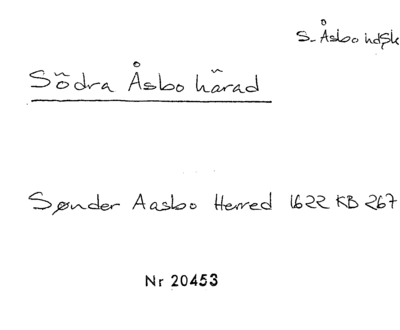 S. Åsbo hdsk
Södra Åsbo härad
Sønder Aasbo Herred 1622 KB 267
Nr 20453